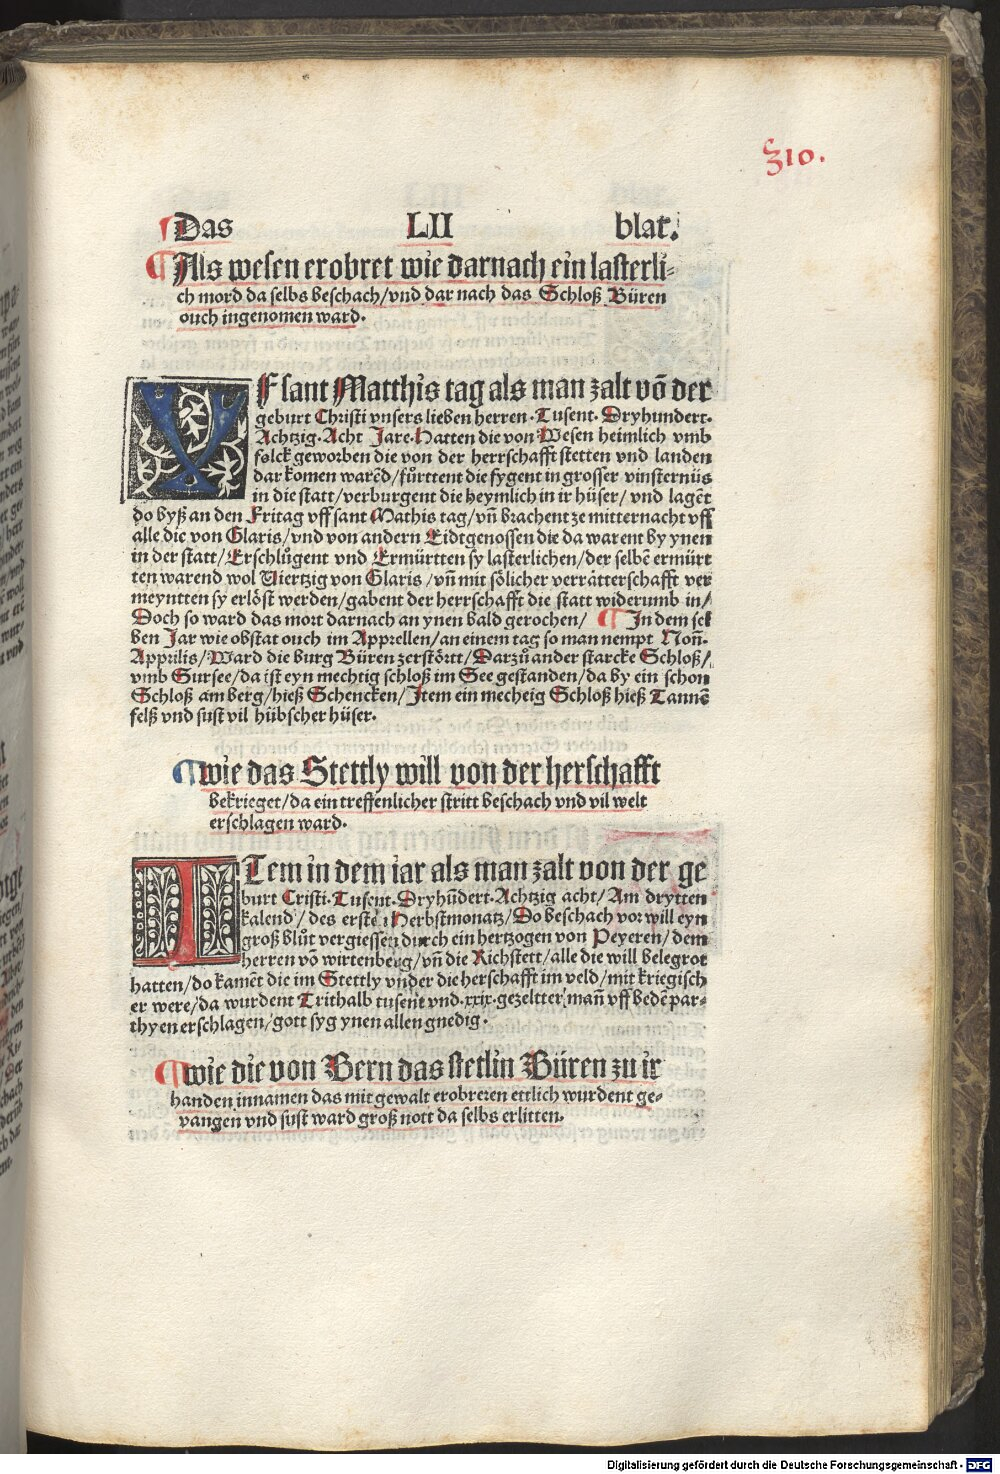 310.
¶Das LII blat.
¶Als wesen erobret wie darnach ein lasterli-
ch mord da selbs beschach/vnd dar nach das Schloß Büren
ouch ingenomen ward.
VF sant Matthis tag als man zalt võ der
geburt Christi vnsers lieben herren. Tusent. Dryhundert.
Achtzig. Acht Jare. Hatten die von Wesen heimlich vmb
folck geworben die von der herrschafft stetten vnd landen
dar komen warẽd/fůrttent die fygent in grosser vinsternüs
in die statt/verburgent die heymlich in ir hüser/ vnd lagẽt
do byß an den Fritag vff sant Mathis tag/vñ brachent ze mitternacht vff
alle die von Glaris/vnd von andern Eidtgenossen die da warent by ynen
in der statt/Erschlůgent vnd Ermürtten sy lasterlichen/der selbẽ ermürt
ten warend wol Viertzig von Glaris/vñ mit sölicher verrätterschafft ver
meyntten sy erlöst werden/gabent der herrschafft die statt widerumb in/
Doch so ward das mort darnach an ynen bald gerochen/ ¶ In dem sel
ben Jar wie obstat ouch im Apprellen/an einem tag so man nempt Noñ.
Apprilis/Ward die burg Büren zerstörtt/Darzů ander starcke Schloß/
vmb Sursee/da ist eyn mechtig schloß im See gestanden/da by ein schon
Schloß am berg/hieß Schencken/Item ein mecheig Schloß hieß Tannẽ
felß vnd sust vil hübscher hüser.
¶wie das Stettly will von der herschafft
bekrieget/da ein treffenlicher stritt beschach vnd vil welt
erschlagen ward.
ITem in dem iar als man zalt von der ge
burt Cristi. Tusent. Dryhũdert. Achtzig acht/Am drytten
kalend/des erstẽ Herbstmonatz/Do beschach vor will eyn
groß blůt vergiessen durch ein hertzogen von Peyeren/dem
herren võ wirtenberg/vñ die Richstett/alle die will belegrot
hatten/do kamẽt die im Stettly vnder die herschafft im veld/mit kriegisch
er were/da wurdent Trithalb tusent vnd.xxix.gezeltter mañ vff bedẽ par-
thyen erschlagen/gott syg ynen allen gnedig.
¶wie die von Bern das stetlin Büren zu ir
handen innamen das mit gewalt erobreren ettlich wurdent ge-
vangen vnd sust ward groß nott da selbs erlitten.
Digitalisierung gefördert durch die Deutsche Forschungsgemeinschaft - DFG